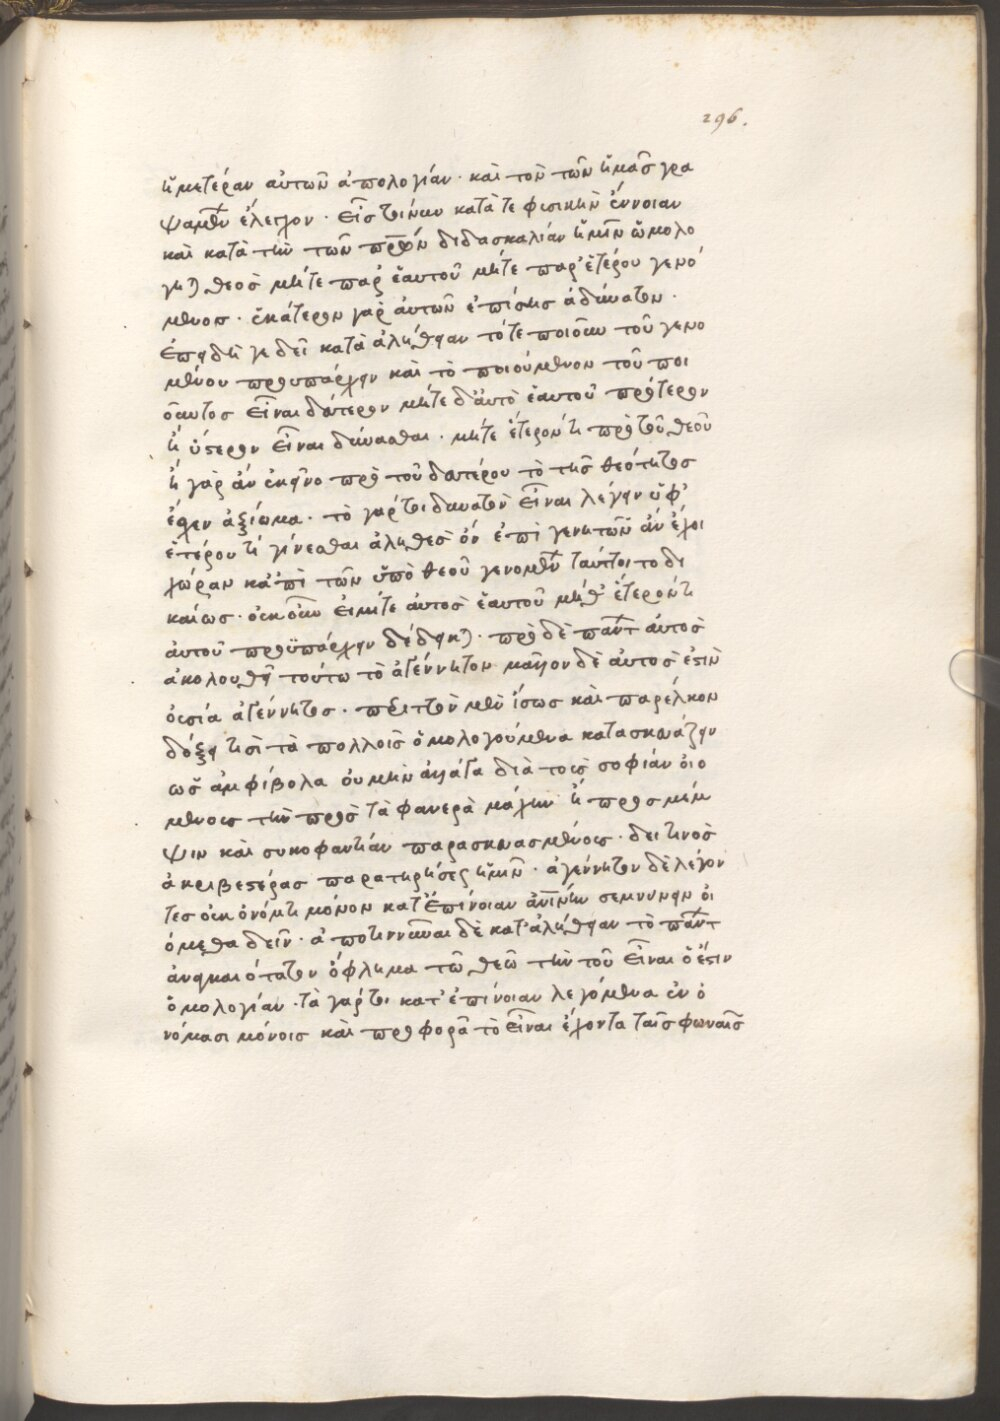 296.
ἡμετέραν αὐτῶν ἀπολογίαν· καὶ τὸν τῶν ἡμᾶς γρα
ψαμένων ἔλεγχον· εἷς τοίνυν κατά τε φυσικὴν ἔννοιαν
καὶ κατὰ τὴν τῶν πρων διδασκαλίαν ἡμῖν ὡμολο
γηται θεὸς μήτε παρ ἑαυτοῦ μήτε παρ' ἑτέρου γενό
μενος· ἑκάτερον γὰρ αὐτῶν ἐπίσης ἀδύνατον·
ἐπειδή γε δεῖ κατὰ ἀλήθειαν τό τε ποιοῦν τοῦ γενο
μένου προυπάρχειν καὶ τὸ ποιούμενον τοῦ ποι
οῦντος εἶναι δεύτερον μήτε δ' αὐτὸ ἑαυτοῦ πρότερον
ἢ ὕστερον εἶναι δύνασθαι· μήτε ἕτερόν τι πρὸ τοῦ θεοῦ
ἢ γὰρ ἂν ἐκεῖνο πρὸ τοῦ δευτέρου τὸ τῆς θεότητος
ἔσχεν ἀξίωμα· τὸ γάρ τοι δυνατὸν εἶναι λέγειν ὑφ'
ἑτέρου τι γίνεσθαι ἀληθὲς ὂν ἐπὶ γενητῶν ἂν ἔχοι
χώραν κἀπὶ τῶν ὑπὸ θεοῦ γενομένων ταύτοι το δι
καίως· οὐκοῦν εἰ μήτε αὐτὸς ἑαυτοῦ μήθ' ἕτερόν τι
αὐτοῦ προϋπάρχειν δέδεικται· πρὸ δὲ πάντων αὐτὸς
ἀκολουθεῖ τούτω τὸ ἀγέννητον μᾶλλον δὲ αὐτός ἐστιν
οὐσία ἀγέννητος· περιττὸν μὲν ἴσως καὶ παρέλκον
δόξει τισὶ τὰ πολλοῖς ὁμολογούμενα κατασκευάζειν
ὡς ἀμφίβολα οὐ μὴν ἀλλά γα διὰ τοὺς σοφίαν οἰο
μένους τὴν πρὸς τὰ φανερὰ μάχην ἢ πρὸς μέμ
ψιν καὶ συκοφαντίαν παρασκευασμένους· δεῖ τινὸς
ἀκριβεστέρας παρατηρήσεως ἡμῖν· ἀγέννητον δὲ λέγον
τες οὐκ ὀνόματι μόνον κατ' ἐπίνοιαν ἀνίνην σεμνύνειν οἰ
όμεθα δεῖν· ἀποτιννῦναι δὲ κατ' ἀλήθειαν τὸ πάντων
ἀναγκαιότατον ὄφλημα τῶ θεῶ τὴν τοῦ εἶναι ὅ ἐστιν
ὁμολογίαν· τὰ γάρ τοι κατ' ἐπίνοιαν λεγόμενα ἐν ὀ
νόμασι μόνοις καὶ προφορᾶ τὸ εἶναι ἔχοντα ταῖς φωναῖς